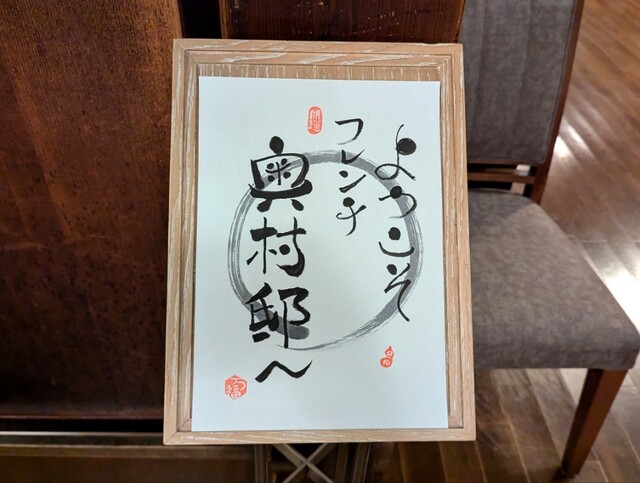 ようこそ
フレンチ
奥村邸へ